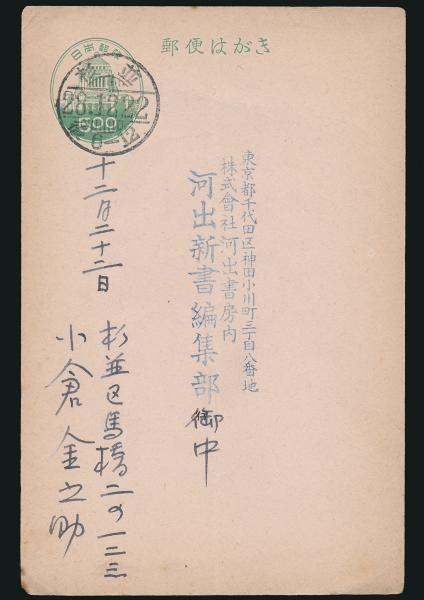 郵便はがき
日本郵便
杉並
28.12.22
6-12
500
東京都千代田区神田小川町三丁目八番地
株式會社河出書房内
河出新書編集部
御中
十二月二十二日
杉並区馬橋二の一二三
小倉金之助